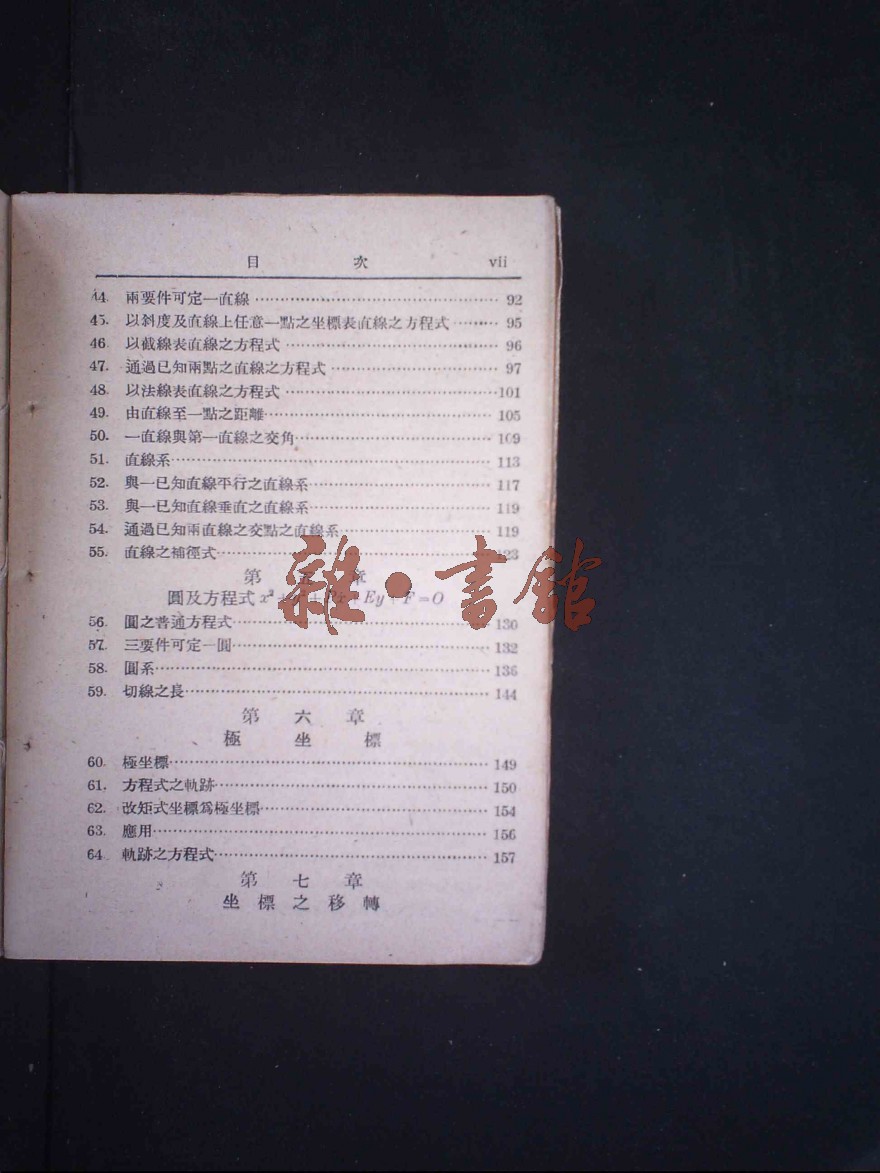 目 次 vii
44. 兩要件可定一直線 92
45. 以斜度及直線上任意一點之坐標表直線之方程式 95
46. 以截線表直線之方程式 96
47. 通過已知兩點之直線之方程式 97
48. 以法線表直線之方程式 101
49. 由直線至一點之距離 105
50. 一直線與第一直線之交角 109
51. 直線系 113
52. 與一已知直線平行之直線系 117
53. 與一已知直線垂直之直線系 119
54. 通過已知兩直線之交點之直線系 119
55. 直線之補徑式 123
第 五 章
圓及方程式 x²+y²+Dx+Ey+F=O
56. 圓之普通方程式 130
57. 三要件可定一圓 132
58. 圓系 136
59. 切線之長 144
第 六 章
極 坐 標
60. 極坐標 149
61. 方程式之軌跡 150
62. 改矩式坐標爲極坐標 154
63. 應用 156
64. 軌跡之方程式 157
第 七 章
坐 標 之 移 轉
雜·書館